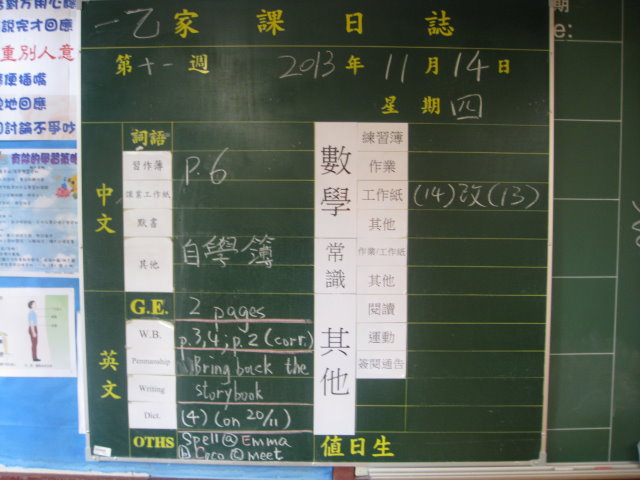 對方用心聽
說完才回應
重別人意
便插嘴
地回應
討論不爭吵
有效的學習策略
一乙家課日誌
第十一週 2013年11月14日
星期四
中文
詞語
習作簿 p.6
課業工作紙
默書
其他 自學簿
英文
G.E. 2 pages
W.B. p.3,4; p.2 (corr.)
Penmanship Bring back the
Writing storybook
Dict. (4) (on 20/11)
OTHS Spell ⓐ Emma
ⓑ Coco ⓒ meet
數學
練習簿
作業
工作紙 (14)改(13)
其他
常識
作業/工作紙
其他
其他
閱讀
運動
簽閱通告
值日生
期
e: